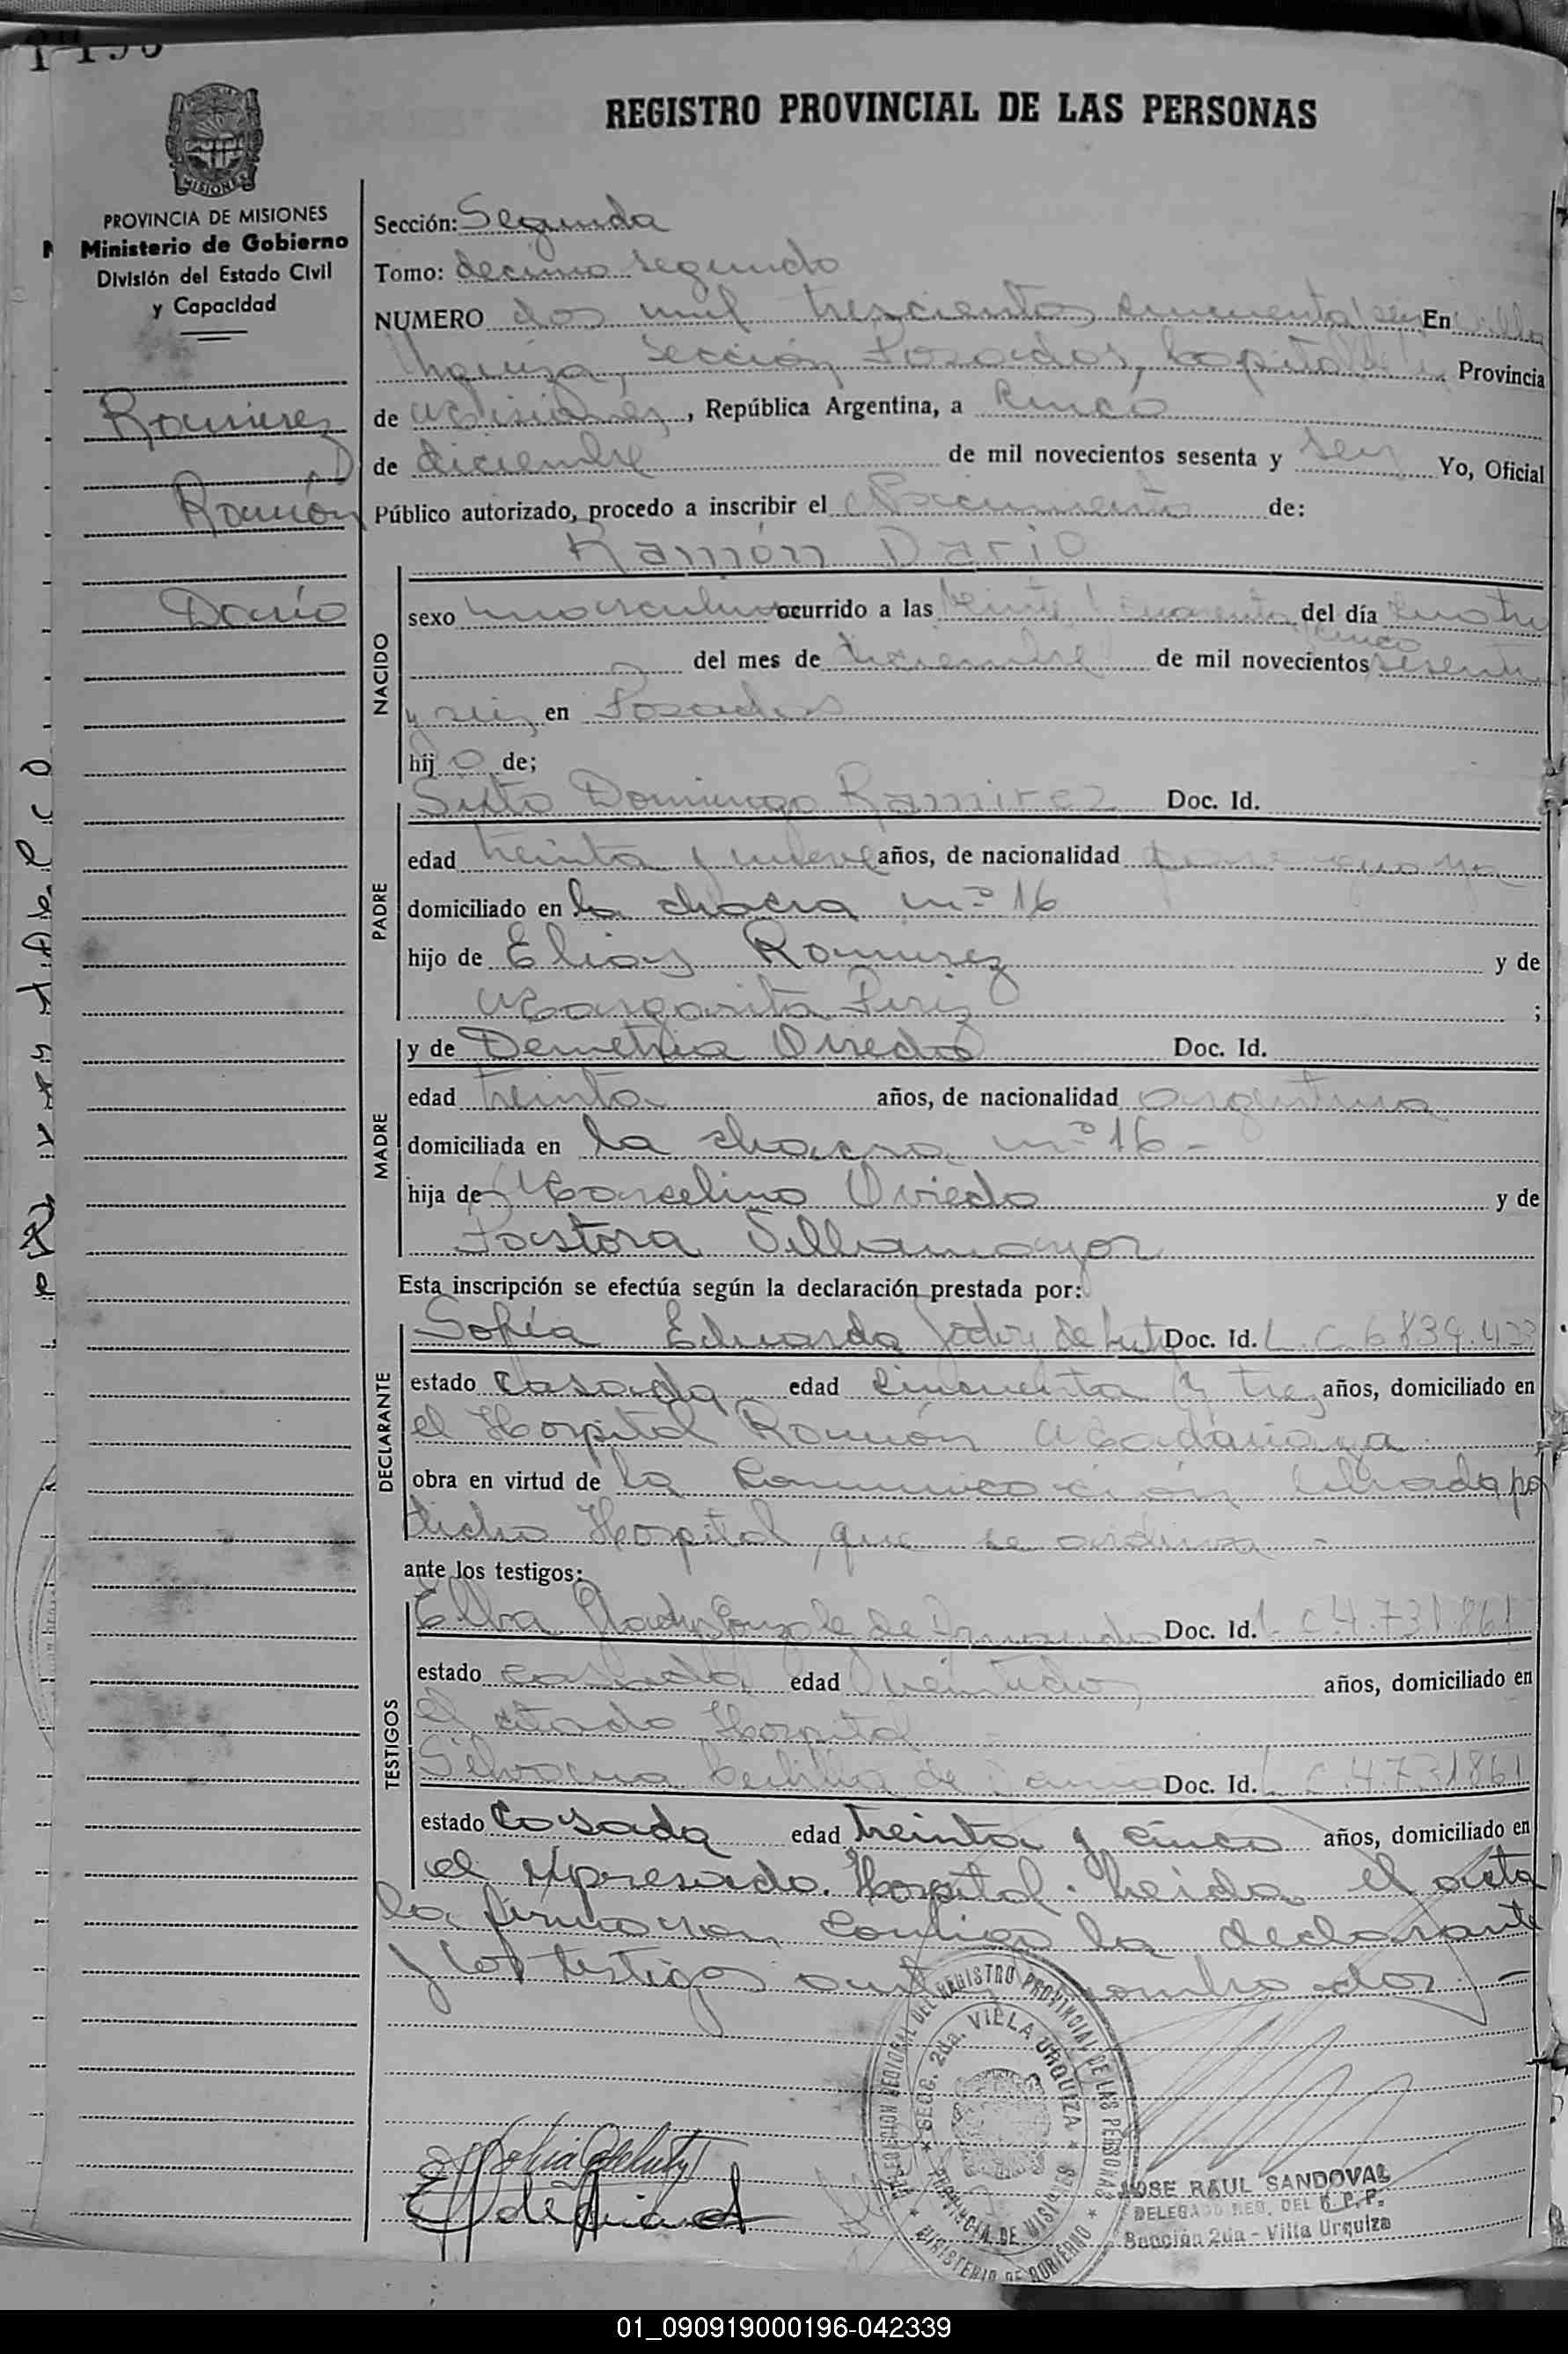 REGISTRO PROVINCIAL DE LAS PERSONAS
MISIONES
PROVINCIA DE MISIONES
Ministerio de Gobierno
División del Estado Civil
y Capacidad
Ramirez
Ramón
Darío
Sección: Segunda
Tomo: decimo segundo
NUMERO dos mil trescientos cincuenta seis En Villa
Urquiza, Sección Posadas, Capital de la Provincia
de Misiones, República Argentina, a cinco
de diciembre de mil novecientos sesenta y seis Yo, Oficial
Público autorizado, procedo a inscribir el Nacimiento de:
Ramón Dario
NACIDO
sexo masculino ocurrido a las veinte y cuarenta cinco del día cuatro
del mes de diciembre de mil novecientos sesenta
y seis en Posadas
hijo de;
PADRE
Sixto Domingo Ramirez Doc. Id.
edad treinta y nueve años, de nacionalidad paraguaya
domiciliado en la chacra nº 16
hijo de Elias Ramirez y de
Margarita Periz ;
MADRE
y de Demetria Oviedo Doc. Id.
edad treinta años, de nacionalidad argentina
domiciliada en la chacra nº 16 -
hija de Marcelino Oviedo y de
Pastora Villamayor
Esta inscripción se efectúa según la declaración prestada por:
DECLARANTE
Sofía Eduarda de Doc. Id. L. C. 6839.423
estado casada edad cincuenta y tres años, domiciliado en
el Hospital Ramón Madariaga
obra en virtud de la Comunicación librada por
dicho Hospital, que se archiva -
ante los testigos:
TESTIGOS
Elba Gladys Gonzalez de Doc. Id. L. C. 4.731.861
estado casada edad veintidos años, domiciliado en
el citado Hospital
Silvana de Doc. Id. L. C. 4.731861
estado casada edad treinta y cinco años, domiciliado en
el expresado Hospital. Leida el acta
la firmaron conmigo la declarante
y los testigos antes nombrados. -
DELEGACION REGIONAL DEL REGISTRO PROVINCIAL DE LAS PERSONAS
SECC. 2da. VILLA URQUIZA
PROVINCIA DE MISIONES
MINISTERIO DE GOBIERNO
JOSE RAUL SANDOVAL
DELEGADO REG. DEL R. P. P.
Sección 2da - Villa Urquiza
01_090919000196-042339